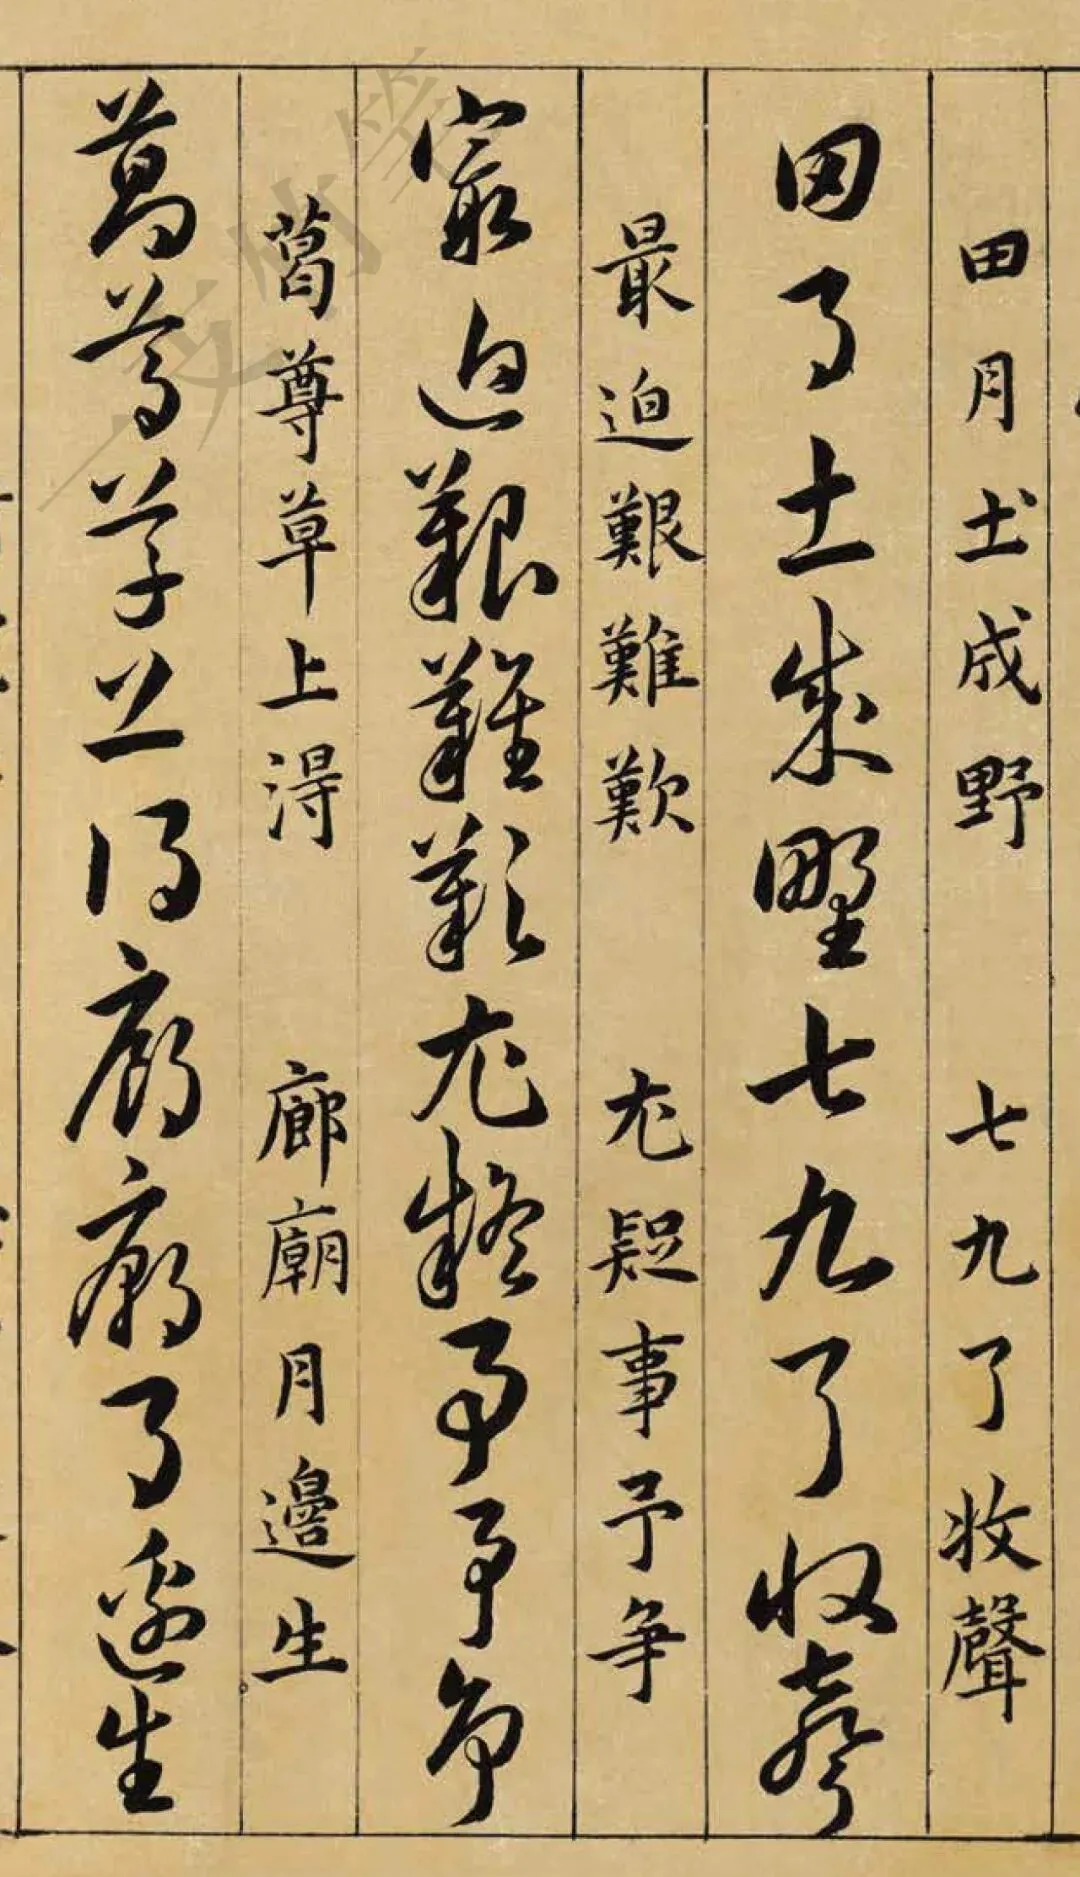 田月土成野 七九了收聲
田月土成野七九了收聲
最迫艱難歎 尤疑事予争
最迫艱難歎尤疑事予争
葛尊草上淂 廊廟月邊生
葛尊草上淂廊廟月邊生